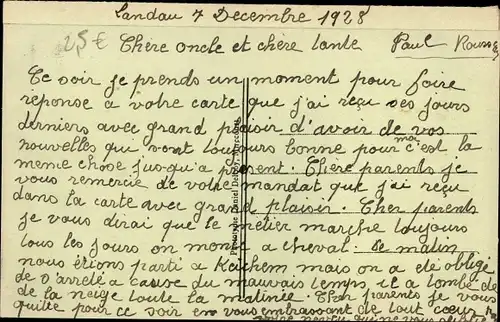 Landau 7 Decembre 1928
25 €
Chère oncle et chère tante Paul
Ce soir je prends un moment pour faire
réponse a votre carte que j'ai reçu ses jours
derniers avec grand plaisir d'avoir de vos
nouvelles qui sont toujours bonne pour moi c'est la
meme chose jus-qu'a présent. Chère parents je
vous remercie de votre mandat que j'ai reçu
dans la carte avec grand plaisir. Cher parents
je vous dirai que le métier marche toujours
tous les jours on monte a cheval. Ce matin
nous étions parti a mais on a été obligé
de s'arrete a cause du mauvais temps il a tombé de
de la neige toute la matinée. Cher parents je vous
quitte pour ce soir en vous embrassant de tout cœur
votre neveu qui ne vous